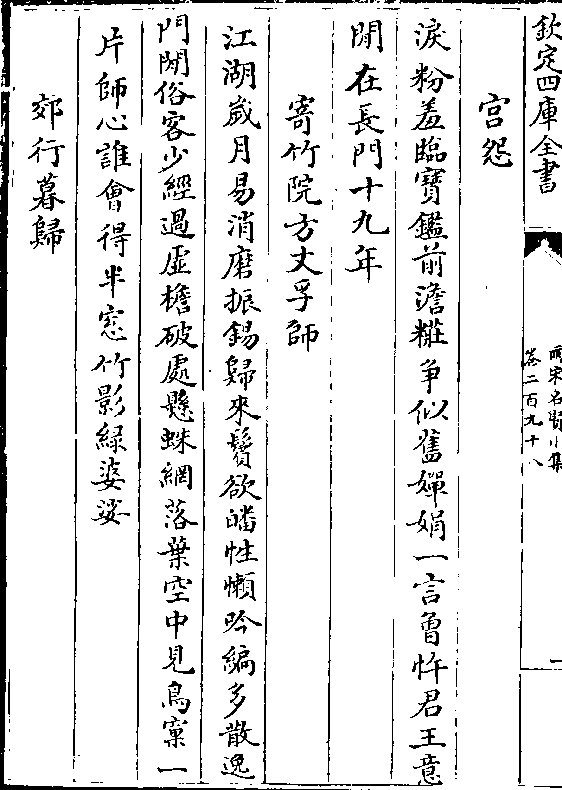 欽定四庫全書
兩宋名賢小集
卷二百九十八
宮怨
淚粉羞臨寶鑑前澹糚争似舊嬋娟一言曾忤君王意
閒在長門十九年
寄竹院方丈孚師
江湖嵗月易消磨振錫歸來鬢欲皤性懶吟編多散逸
門閒俗客少經過虚檐破處懸蛛網落葉空中見鳥窠一
片師心誰會得半窓竹影緑婆娑
郊行暮歸